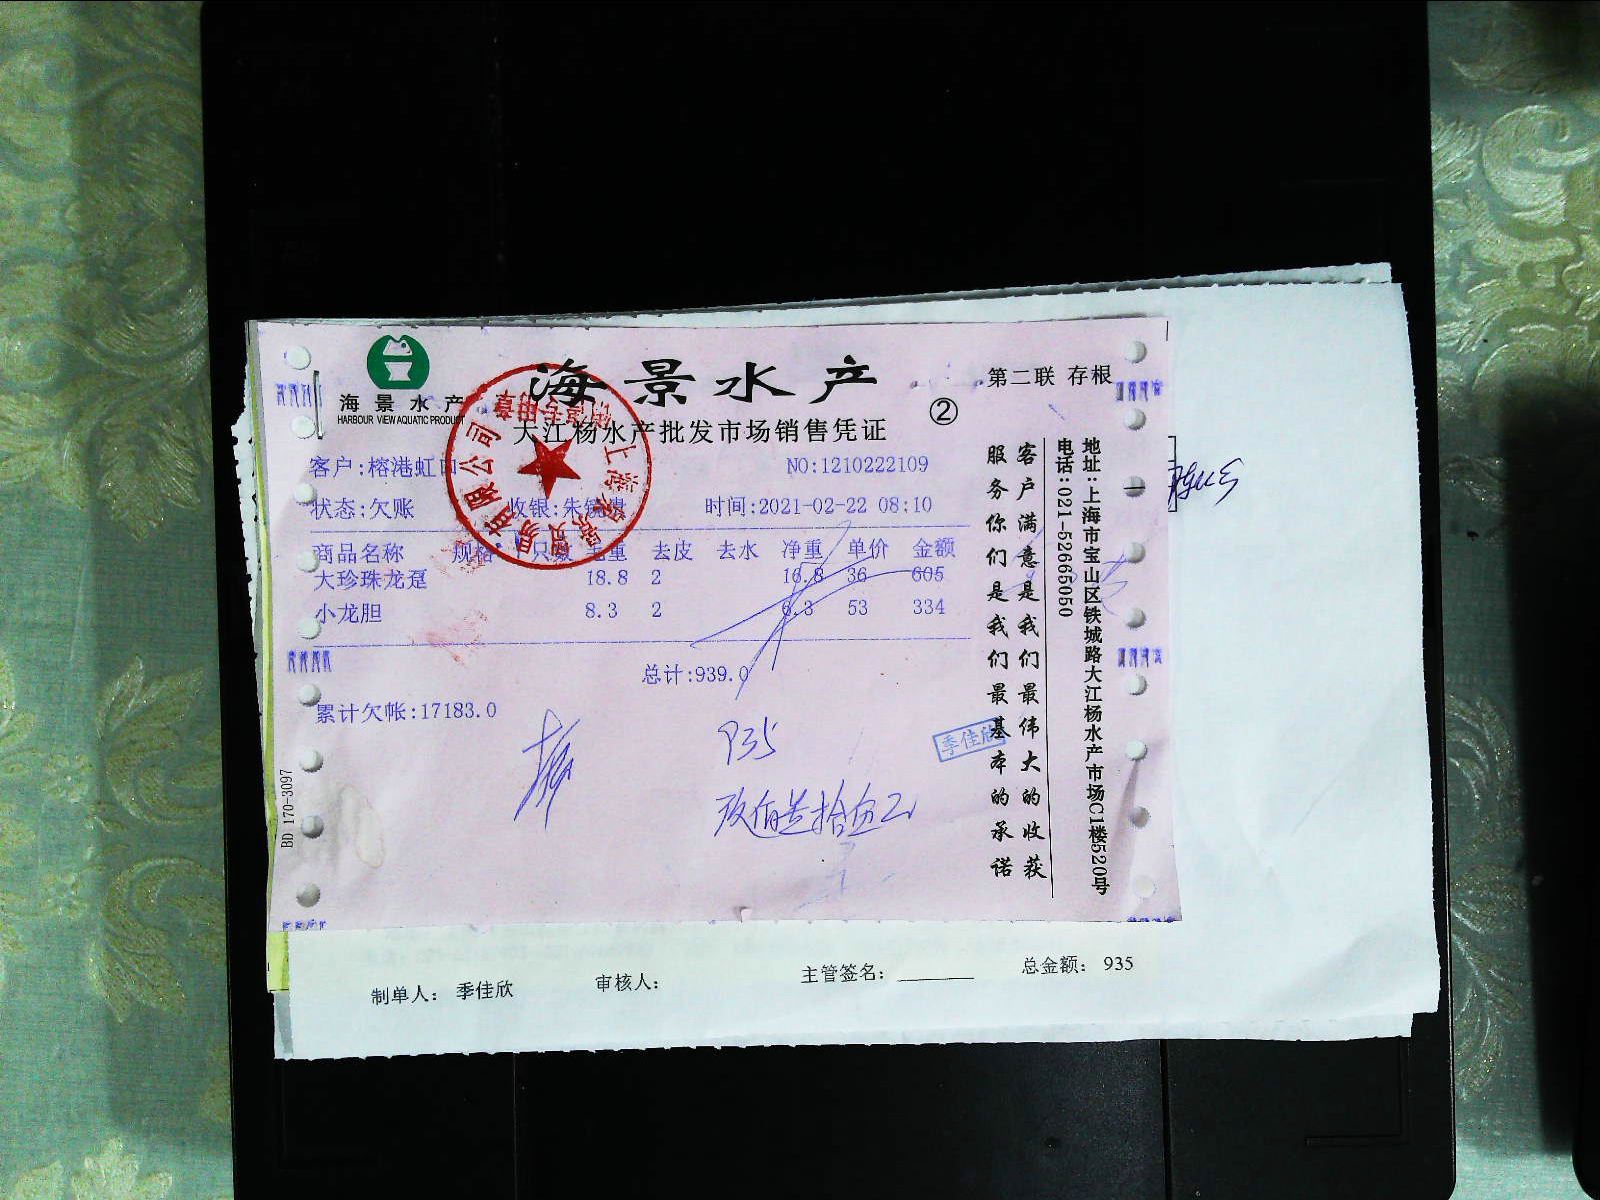 海景水产
HARBOUR VIEW AQUATIC PRODUCT
海景水产
第二联 存根
大江杨水产批发市场销售凭证
②
客户:榕港虹口
NO:1210222109
状态:欠账
收银:朱
时间:2021-02-22 08:10
商品名称 规格 只数 毛重 去皮 去水 净重 单价 金额
大珍珠龙趸 18.8 2 16.8 36 605
小龙胆 8.3 2 6.3 53 334
总计:939.0
累计欠帐:17183.0
935
玖佰叁拾伍元
季佳欣
BD 170-3097
客户满意是我们最伟大的收获
服务你们是我们最基本的承诺
地址:上海市宝山区铁城路大江杨水产市场C1楼520号
电话:021-52665050
制单人: 季佳欣 审核人: 主管签名: 总金额: 935